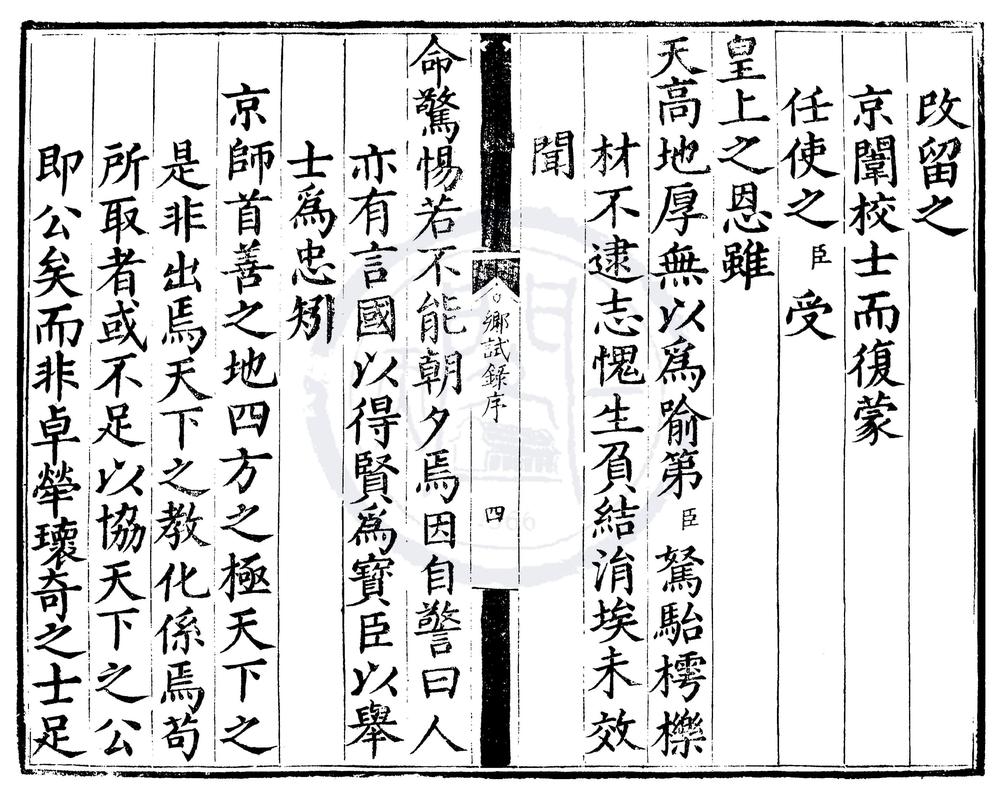 改留之
京闈校士而復蒙
任使之臣受
皇上之恩雖
天高地厚無以為喻第臣駑駘樗櫟
材不逮志愧生負結涓埃未效
聞
鄉試錄序
四
命驚惕若不能朝夕焉因自警曰人
亦有言國以得賢為寶臣以舉
士為忠矧
京師首善之地四方之極天下之
是非出焉天下之教化係焉苟
所取者或不足以協天下之公
即公矣而非卓犖瓌奇之士足